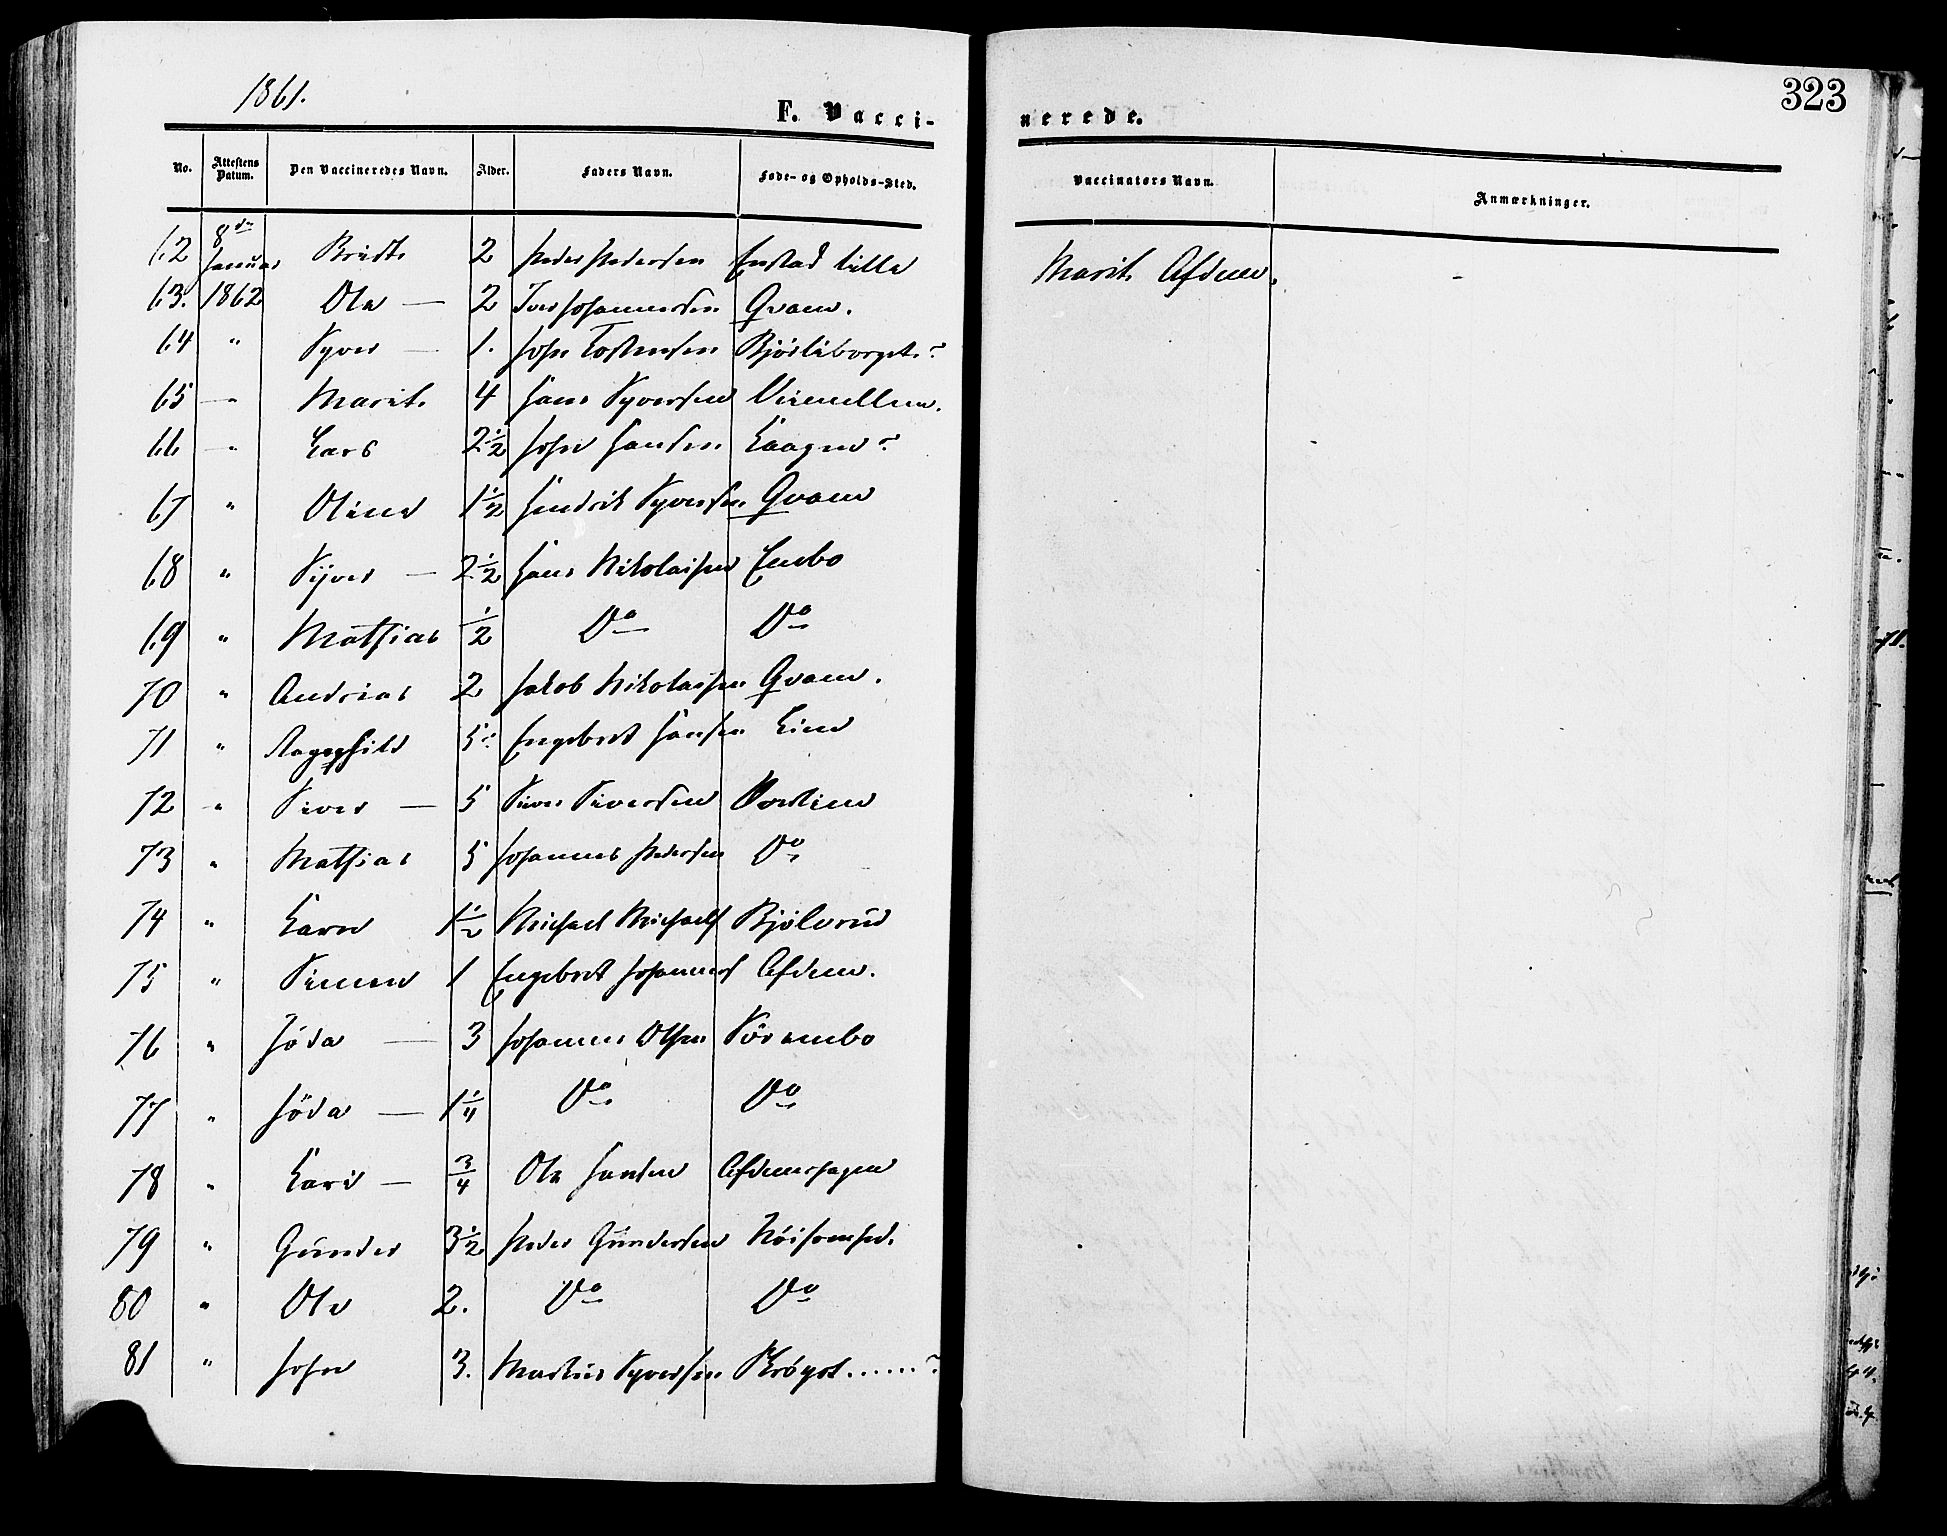 1861.
323
F. Vacci- nerede.
No. Attestens Datum. Den Vaccineredes Navn. Alder. Faders Navn. Føde- og Opholds-Sted. Vaccinators Navn. Anmærkninger.
62 8de Januar Bridt 2 Peder Pedersen Enstad lille Marit Afdem.
63. 1862 Ole — 2 Iver Johannessen Qvam.
64 " Syver — 1. John Tostensen Bjørliborget?
65 — " Marit 4 Hans Syversen
66 — " Lars 2 1/2 John Hansen Haagen?
67 " Oline 1 1/2 Hendrik Syversen Qvam
68 " Syver — 2 1/2 Hans Nikolaisen Embo
69 " Mathias 1/2 Do Do
70 " Andrias 2 Jakob Nikolaisen Qvam.
71 " Ragnhild 5 Engebret Hansen Lien
72 — " Siver — 5 Siver Siversen
73 " Mathias 5 Johannes Pedersen Do
74 " Karen 1 1/2 Michael Michaels Bjølverud
75 " Simen 1 Engebret Johannes Afdem.
76 " Jöda — 3 Johannes Olsen Sör embo
77 " Jöda — 1 1/4 Do Do
78 " Kari — 3/4 Ole Hansen Afdemshagen
79 " Gunder 3 1/2 Peder Gundersen
80 " Ole 2. Do Do
81 " John 3. Martin Syversen ......?